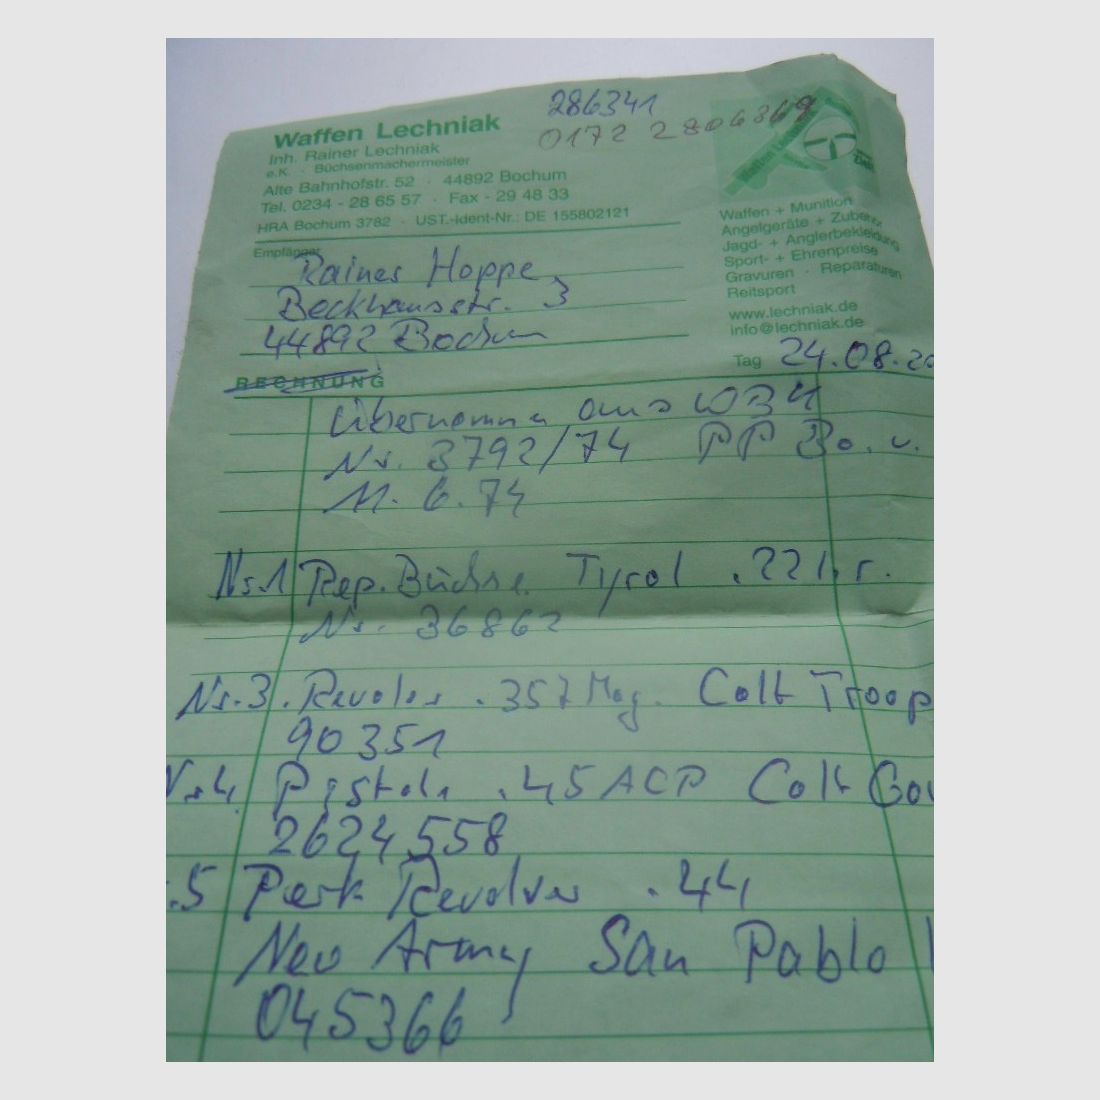 286341
0172 2806369
Waffen Lechniak
Inh. Rainer Lechniak
e.K. · Büchsenmachermeister
Alte Bahnhofstr. 52 · 44892 Bochum
Tel. 0234 - 28 65 57 · Fax - 29 48 33
HRA Bochum 3782 · UST.-Ident-Nr.: DE 155802121
Waffen Lechniak
Waffen + Munition
Angelgeräte + Zubehör
Jagd- + Anglerbekleidung
Sport- + Ehrenpreise
Gravuren · Reparaturen
Reitsport
www.lechniak.de
info@lechniak.de
Empfänger
Rainer Hoppe
Beckhausstr. 3
44892 Bochum
Tag 24.08.20
RECHNUNG
Übernomm aus WBK
Nr. 3792/74 PP Bo. v.
11. 6. 74
Nr.1 Rep. Büchse Tyrol .22 l.r.
Nr. 36862
Nr.3. Revolver .357 Mag. Colt Troop
90351
Nr.4. Pistole .45 ACP Colt Gov
2624558
.5 Perk Revolver .44
New Army San Pablo
045366